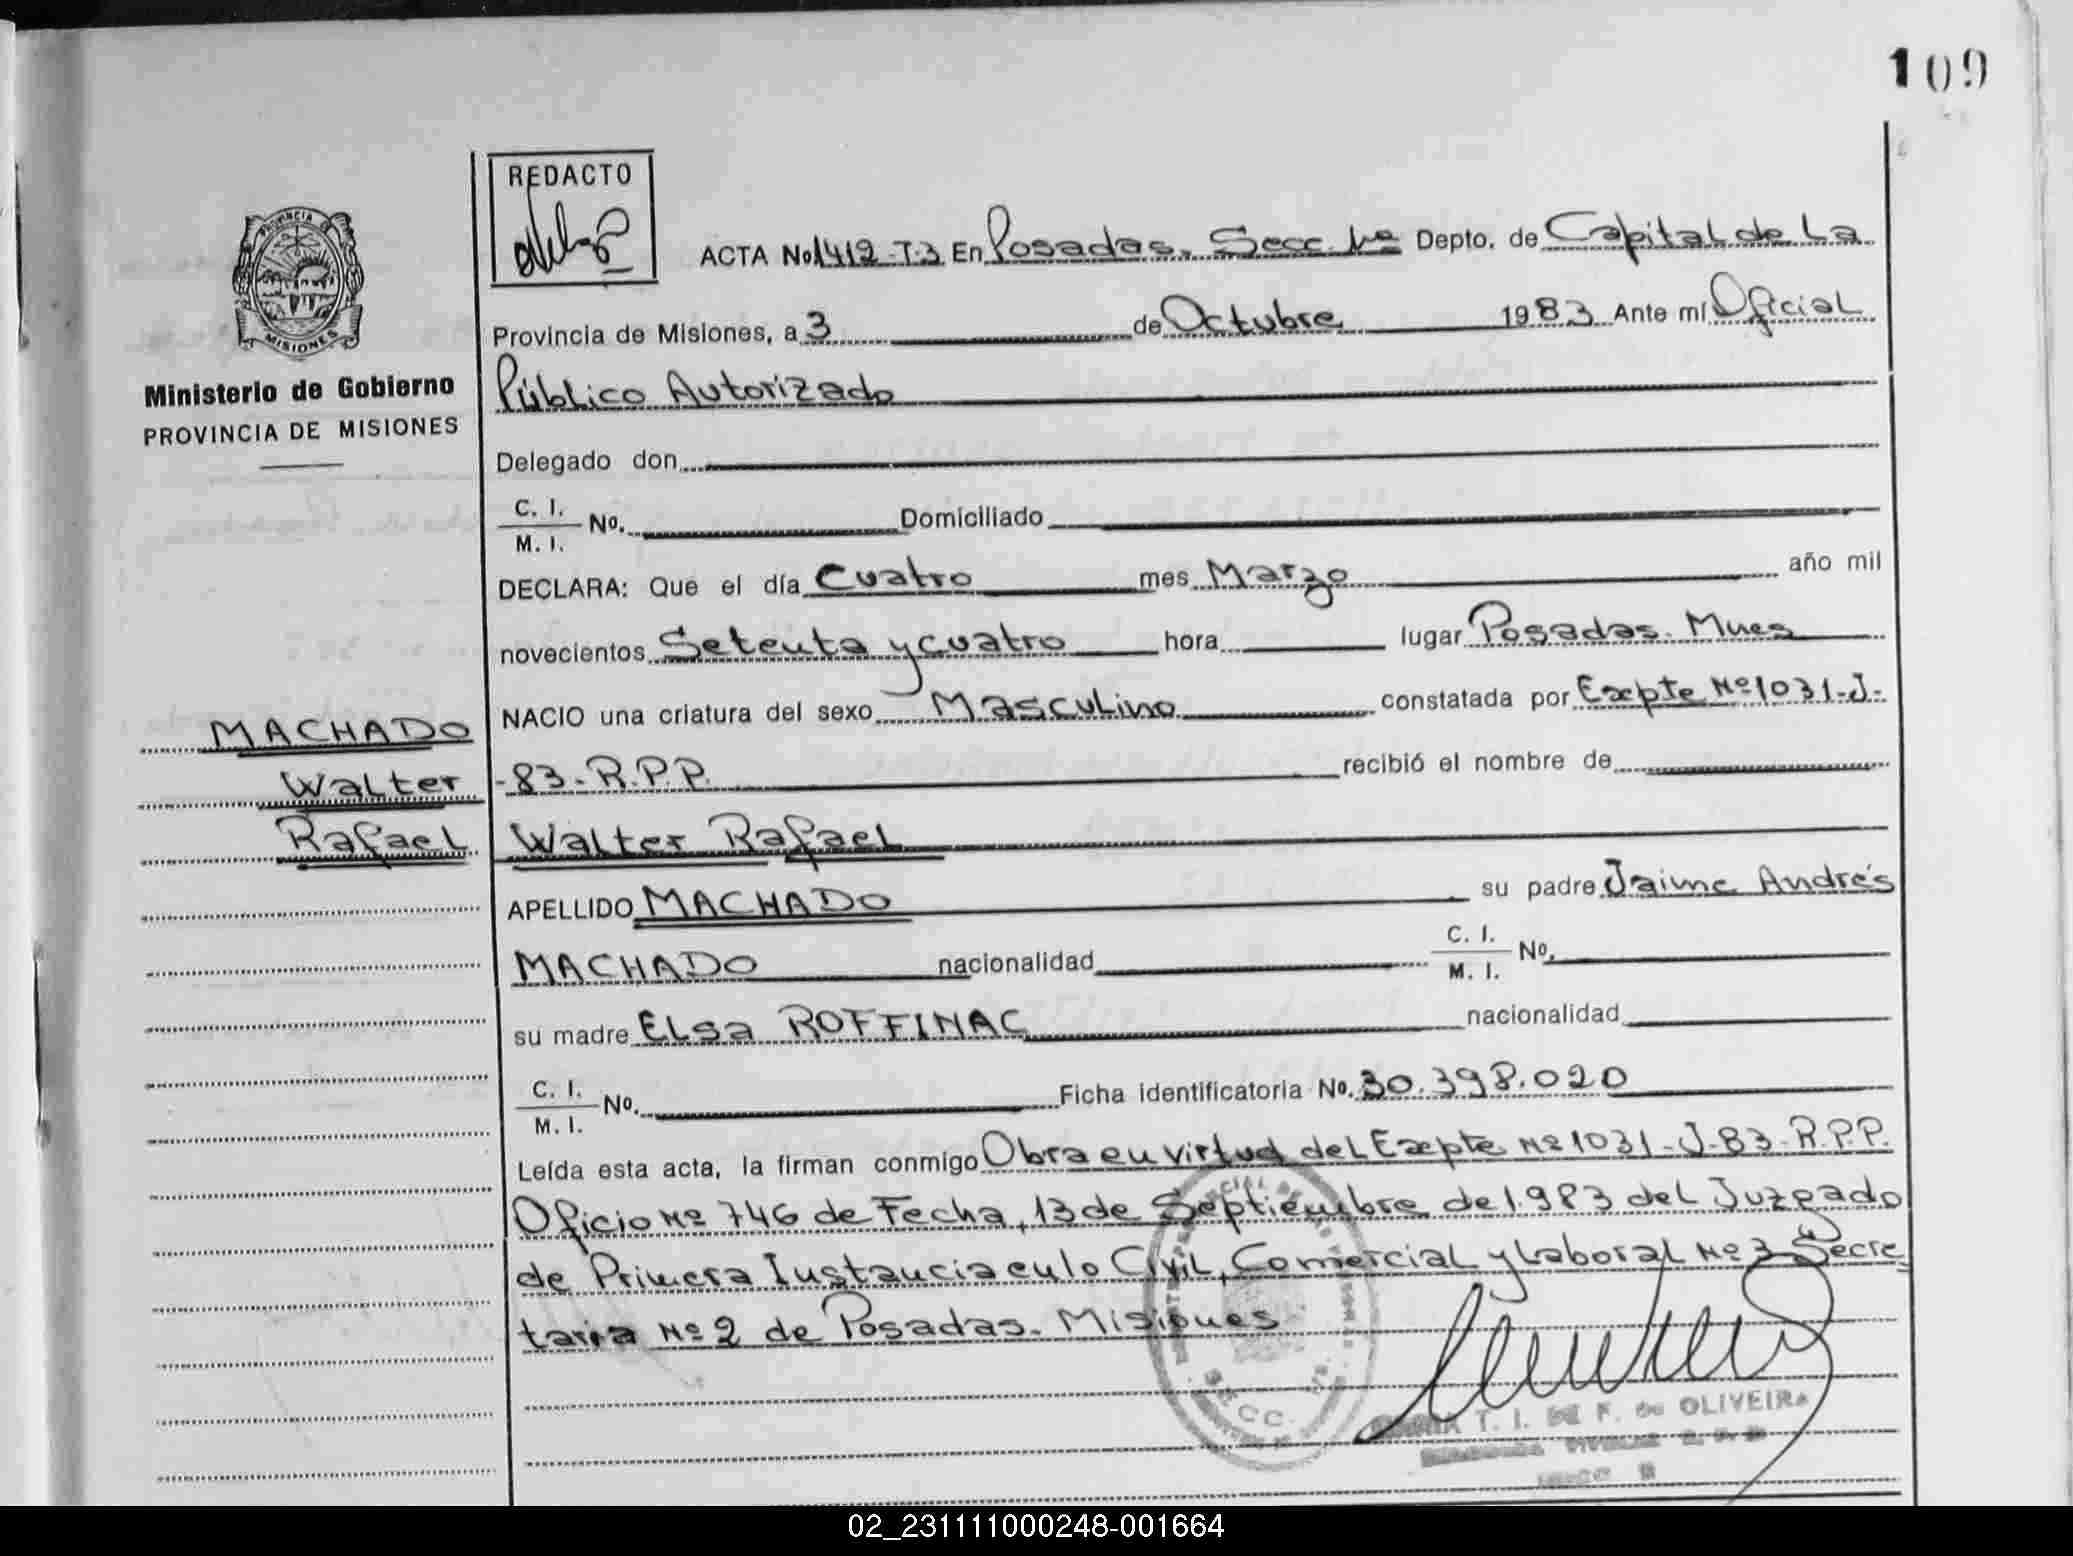 109
REDACTO
ACTA No 1412-T.3 En Posadas, Secc. 1ª Depto. de Capital de La
Provincia de Misiones, a 3 de Octubre 1983 Ante mí Oficial
Público Autorizado
PROVINCIA DE
MISIONES
Ministerio de Gobierno
PROVINCIA DE MISIONES
Delegado don
C. I.
M. I. No. Domiciliado
DECLARA: Que el día Cuatro mes Marzo año mil
novecientos Setenta y cuatro hora lugar Posadas. Mnes
NACIO una criatura del sexo Masculino constatada por Expte Nº 1031-J-
-83-R.P.P. recibió el nombre de
MACHADO
Walter
Rafael
Walter Rafael
APELLIDO MACHADO su padre Jaime Andrés
MACHADO nacionalidad C. I.
M. I. No.
su madre Elsa ROFFINAC nacionalidad
C. I.
M. I. No. Ficha identificatoria No. 30.398.020
Leída esta acta, la firman conmigo Obra en virtud del Expte Nº 1031-J-83-R.P.P.
Oficio Nº 746 de Fecha, 13 de Septiembre de 1.983 del Juzgado
de Primera Instancia en lo Civil, Comercial y Laboral Nº 3 Secre
taria Nº 2 de Posadas. Misiones
T. I. DE F. de OLIVEIRA
02_231111000248-001664